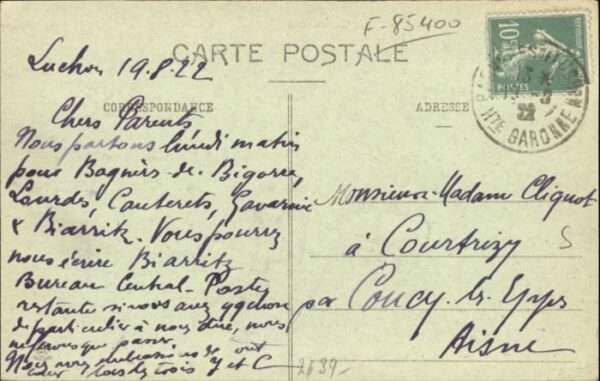 F-85400
CARTE POSTALE
10c
POSTES
HTE GARONNE
22
Luchon 19.8.22
CORRESPONDANCE
ADRESSE
Chers Parents
Nous partons lundi matin
pour Bagnèrs-de-Bigorre,
Lourdes, Cauterets, Gavarnie
& Biarritz. Vous pourrez
nous écrire Biarritz
Bureau Central-Poste
restante si vous avez qq chose
de particulier à nous dire, nous
ne ferons que passer.
Nous vous embrassons de tout
cœur tous les trois Y et C
Monsieur-Madam Cliquot
à Courtrizy
par Coucy-les-Eppes
Aisne
2639-